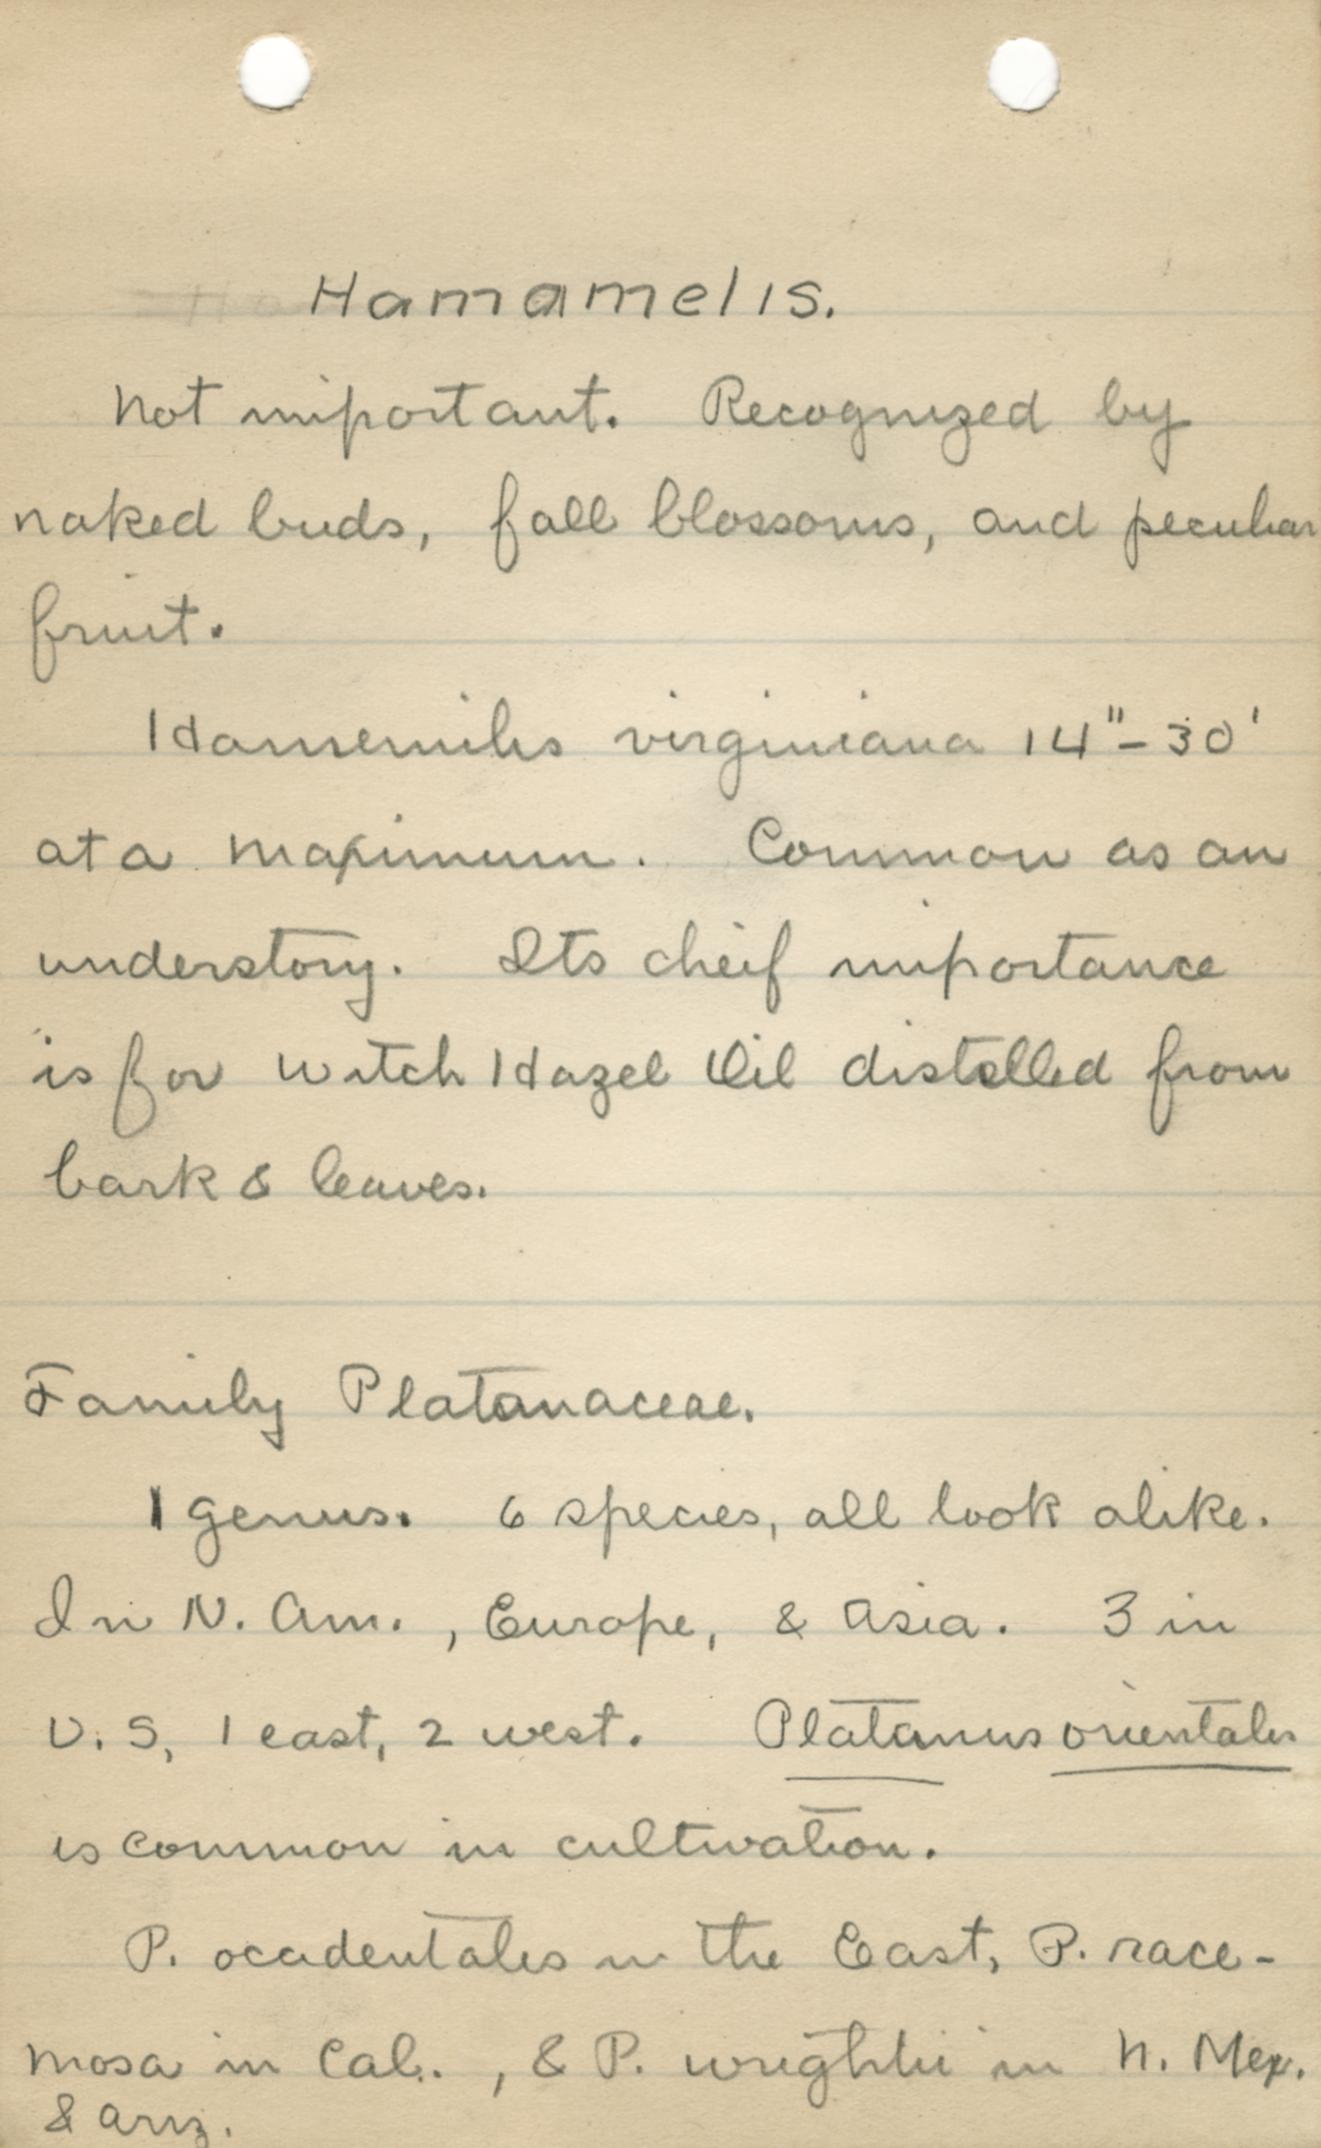 Hamamelis.
Not important. Recognized by
naked buds, fall blossoms, and peculiar
fruit.
Hamemilis virginiana 14"-30'
at a maximum. Common as an
understory. Its cheif importance
is for Witch Hazel Oil distilled from
bark & leaves.
Family Platanaceae.
1 genus. 6 species, all look alike.
In N. Am., Europe, & Asia. 3 in
U.S, 1 east, 2 west. Platanus orientalis
is common in cultivation.
P. occidentales in the East, P. race-
mosa in Cal., & P. wrightii in N. Mex.
& Ariz.